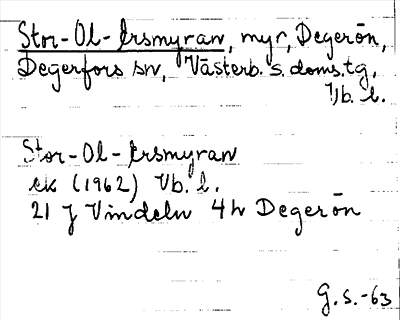 Stor-Ol-Ersmyran, myr, Degerön,
Degerfors sn, Västerb. s. doms. tg,
Vb. l.
Stor-Ol-Ersmyran
ek (1962) Vb. l.
21 J Vindeln 4h Degerön
G. S. -63